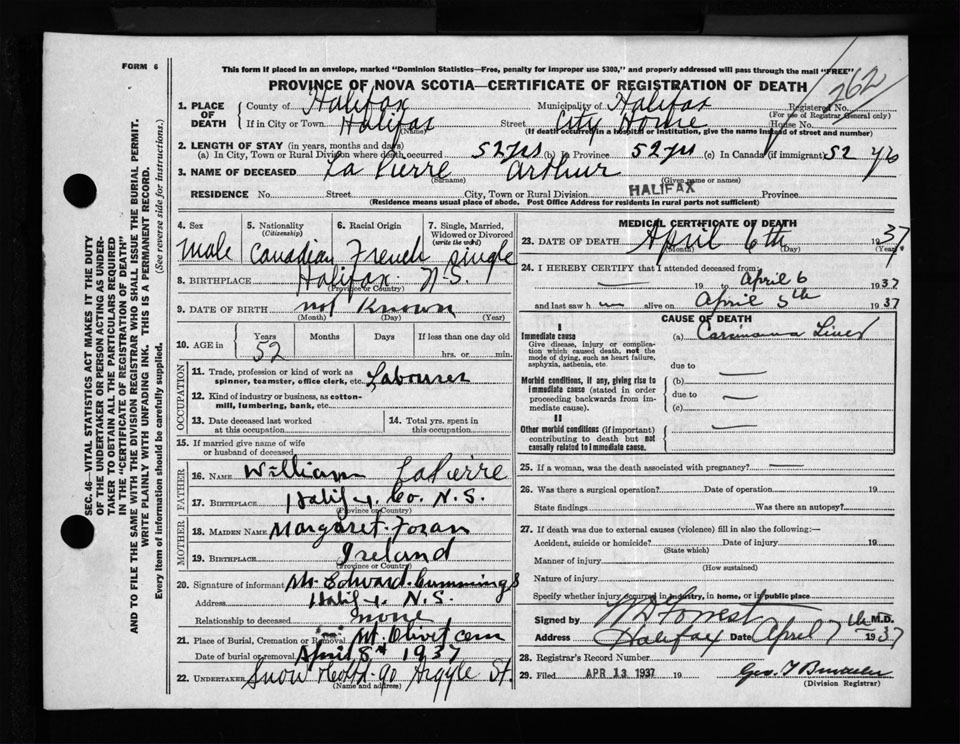 FORM 6
This form if placed in an envelope, marked "Dominion Statistics—Free, penalty for improper use $300," and properly addressed will pass through the mail "FREE"
PROVINCE OF NOVA SCOTIA—CERTIFICATE OF REGISTRATION OF DEATH
262
1. PLACE OF DEATH County of Halifax Municipality of Halifax Registered No.
(For use of Registrar General only)
If in City or Town Halifax Street City Home House No.
(Name) (If death occurred in a hospital or institution, give the name instead of street and number)
2. LENGTH OF STAY (in years, months and days)
(a) In City, Town or Rural Division where death occurred 52 yrs (b) In Province 52 yrs (c) In Canada (if immigrant) 52 yrs
3. NAME OF DECEASED La Pierre Arthur
(Surname) (Given name or names)
RESIDENCE No. Street City, Town or Rural Division HALIFAX Province
(Residence means usual place of abode. Post Office Address for residents in rural parts not sufficient)
4. Sex 5. Nationality 6. Racial Origin 7. Single, Married,
(Citizenship) Widowed or Divorced
(write the word)
male Canadian French single
8. BIRTHPLACE Halifax N.S.
(Province or Country)
9. DATE OF BIRTH not Known
(Month) (Day) (Year)
10. AGE in Years Months Days If less than one day old
52 hrs. or min.
OCCUPATION
11. Trade, profession or kind of work as
spinner, teamster, office clerk, etc. Labourer
12. Kind of industry or business, as cotton-
mill, lumbering, bank, etc.
13. Date deceased last worked at this occupation
14. Total yrs. spent in this occupation
15. If married give name of wife
or husband of deceased
FATHER
16. NAME William LaPierre
17. BIRTHPLACE Halif-x Co. N.S.
(Province or Country)
MOTHER
18. MAIDEN NAME Margaret Foran
19. BIRTHPLACE Ireland
(Province or Country)
20. Signature of informant Mr. Edward Cummings
Address Halif-x N.S.
Relationship to deceased none
21. Place of Burial, Cremation or Removal Mt. Olivet cem
Date of burial or removal April 8th 1937
22. UNDERTAKER Snow & Co Ltd. 90 Argyle St.
(Name and address)
MEDICAL CERTIFICATE OF DEATH
23. DATE OF DEATH April 6th 1937
(Month) (Day) (Year)
24. I HEREBY CERTIFY that I attended deceased from
19 to April 6 1937
and last saw h alive on April 5th 1937
CAUSE OF DEATH
I
Immediate cause (a) Carcinoma Liver
Give disease, injury or complica-
tion which caused death, not the
mode of dying, such as heart failure,
asphyxia, asthenia, etc. due to
Morbid conditions, if any, giving rise to (b)
immediate cause (stated in order due to
proceeding backwards from im-
mediate cause). (c)
II
Other morbid conditions (if important)
contributing to death but not
causally related to immediate cause.
25. If a woman, was the death associated with pregnancy?
26. Was there a surgical operation? Date of operation 19
State findings Was there an autopsy?
27. If death was due to external causes (violence) fill in also the following:—
Accident, suicide or homicide? Date of injury 19
(State which)
Manner of injury
(How sustained)
Nature of injury
Specify whether injury occurred in industry, in home, or in public place
Signed by Forrest M.D.
Address Halifax Date April 7th 1937
28. Registrar's Record Number
29. Filed APR 13 1937 19
(Division Registrar)
SEC. 46—VITAL STATISTICS ACT MAKES IT THE DUTY
OF THE UNDERTAKER OR PERSON ACTING AS UNDER-
TAKER TO OBTAIN ALL THE PARTICULARS REQUIRED
IN THE "CERTIFICATE OF REGISTRATION OF DEATH"
AND TO FILE THE SAME WITH THE DIVISION REGISTRAR WHO SHALL ISSUE THE BURIAL PERMIT.
WRITE PLAINLY WITH UNFADING INK. THIS IS A PERMANENT RECORD.
Every item of information should be carefully supplied. (See reverse side for instructions.)